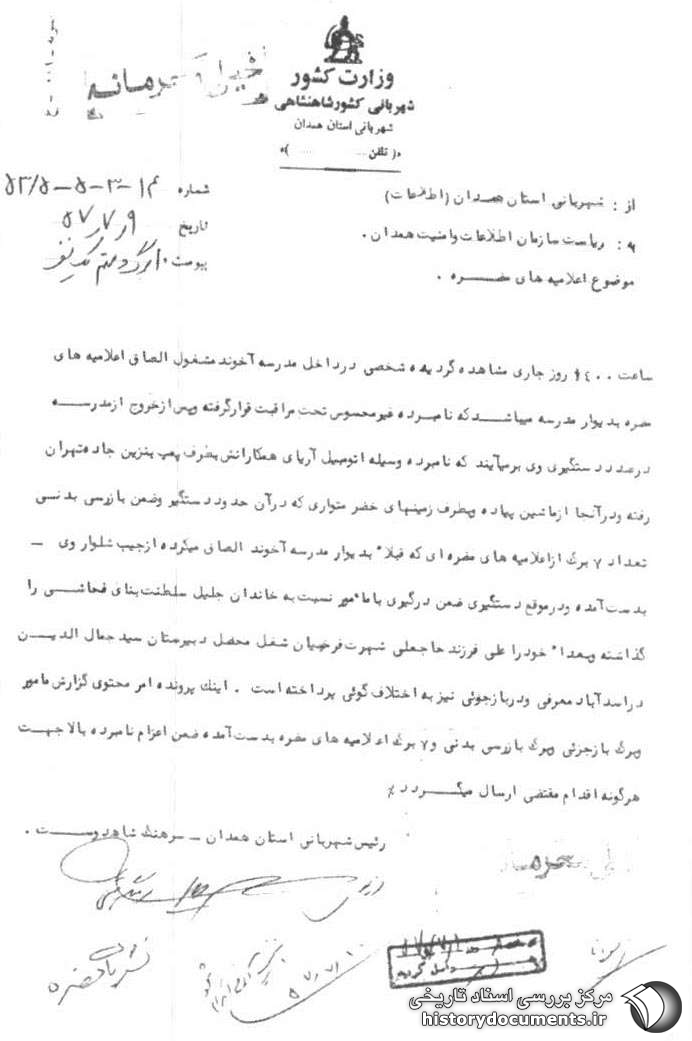 خیلی محرمانه
وزارت کشور
شهربانی کشور شاهنشاهی
شهربانی استان همدان
«( تلفن ..... )»
شماره ۵۳/۵-۵-۳-۱۴
تاریخ ۵۷٫۷٫۹
پیوست
از : شهربانی استان همدان (اطلاعات)
به : ریاست سازمان اطلاعات و امنیت همدان .
موضوع اعلامیه های مضره .
ساعت ۱٤۰۰ روز جاری مشاهده گردیده شخصی در داخل مدرسه آخوند مشغول الصاق اعلامیه های
مضره بدیوار مدرسه میباشد که نامبرده غیرمحسوس تحت مراقبت قرار گرفته و پس از خروج از مدرسه
درصدد دستگیری وی برمیآیند که نامبرده وسیله اتومبیل آریای همکارانش بطرف پمپ بنزین جاده تهران
رفته و در آنجا از ماشین پیاده و بطرف زمینهای خضر متواری که در آن حدود دستگیر و ضمن بازرسی بدنی
تعداد ۷ برگ از اعلامیه های مضره ای که قبلا" بدیوار مدرسه آخوند الصاق میکرده از جیب شلوار وی -
بدست آمده و در موقع دستگیری ضمن درگیری با مامور نسبت به خاندان جلیل سلطنت بنای فحاشی را
گذاشته و بعدا" خود را علی فرزند حاجعلی شهرت فرخیان شغل محصل دبیرستان سید جمال الدین
در اسدآباد معرفی و در بازجوئی نیز به اختلاف گوئی پرداخته است . اینك پرونده امر محتوی گزارش مامور
وبرگ بازجوئی وبرگ بازرسی بدنی و ۷ برگ اعلامیه های مضره بدست آمده ضمن اعزام نامبرده بالا جهت
هرگونه اقدام مقتضی ارسال میگردد٪
رئیس شهربانی استان همدان - سرهنگ شاهدوست .
۵۷٫۷٫۱۰
مرکز بررسی اسناد تاریخی
historydocuments.ir